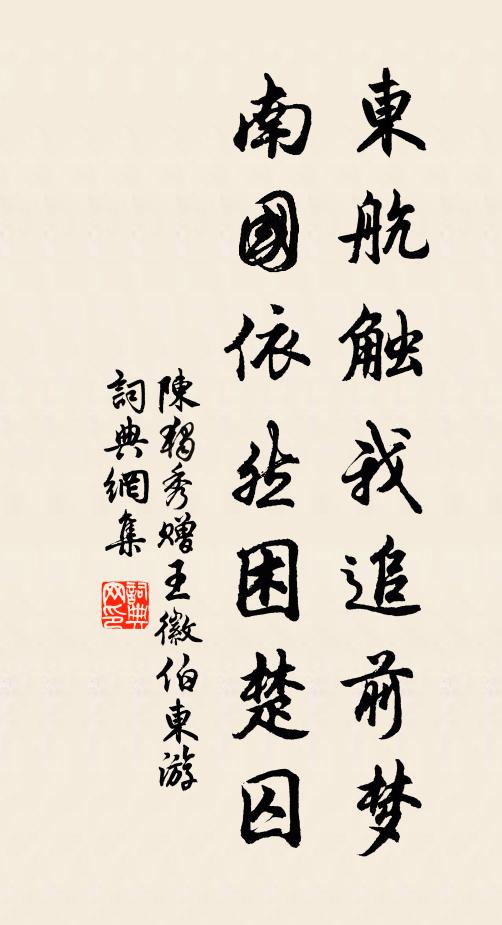 東航触我追前梦
南國依然困楚囚
陳獨秀赠王徽伯東游
詞典網集
詞典
网印